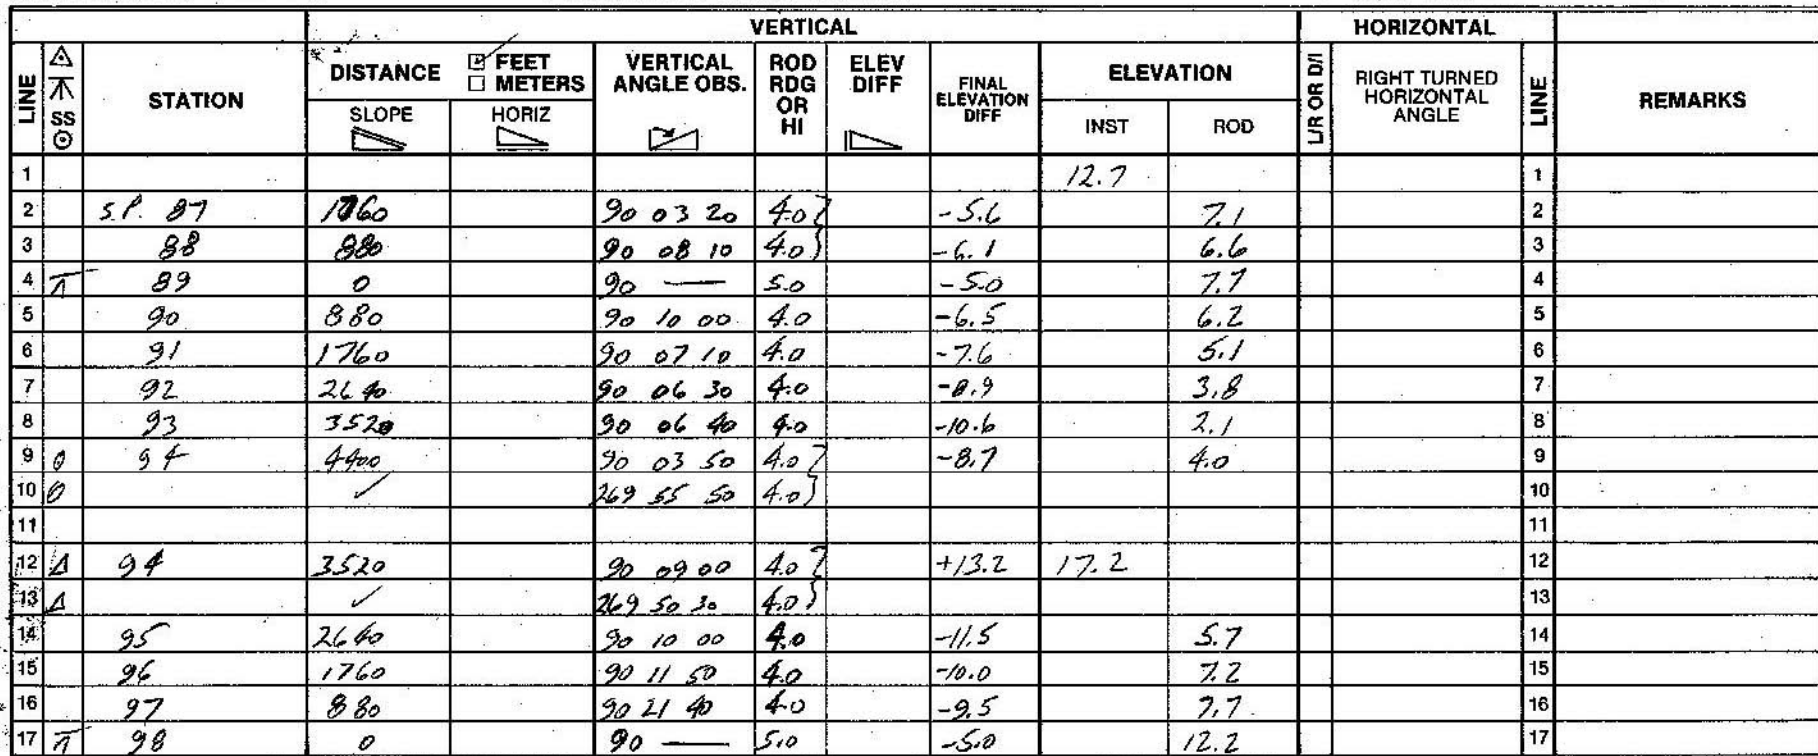 VERTICAL HORIZONTAL
LINE SS STATION DISTANCE FEET METERS VERTICAL ANGLE OBS. ROD RDG OR HI ELEV DIFF FINAL ELEVATION DIFF ELEVATION L/R OR D/I RIGHT TURNED HORIZONTAL ANGLE LINE REMARKS
SLOPE HORIZ INST ROD
1 12.7 1
2 S.P. 87 1760 90 03 20 4.0 -5.6 7.1 2
3 88 880 90 08 10 4.0 -6.1 6.6 3
4 89 0 90 — 5.0 -5.0 7.7 4
5 90 880 90 10 00 4.0 -6.5 6.2 5
6 91 1760 90 07 10 4.0 -7.6 5.1 6
7 92 2640 90 06 30 4.0 -8.9 3.8 7
8 93 3520 90 06 40 4.0 -10.6 2.1 8
9 94 4400 90 03 50 4.0 -8.7 4.0 9
10 ✓ 269 55 50 4.0 10
11 11
12 Δ 94 3520 90 09 00 4.0 +13.2 17.2 12
13 Δ ✓ 269 50 30 4.0 13
14 95 2640 90 10 00 4.0 -11.5 5.7 14
15 96 1760 90 11 50 4.0 -10.0 7.2 15
16 97 880 90 21 40 4.0 -9.5 7.7 16
17 98 0 90 — 5.0 -5.0 12.2 17